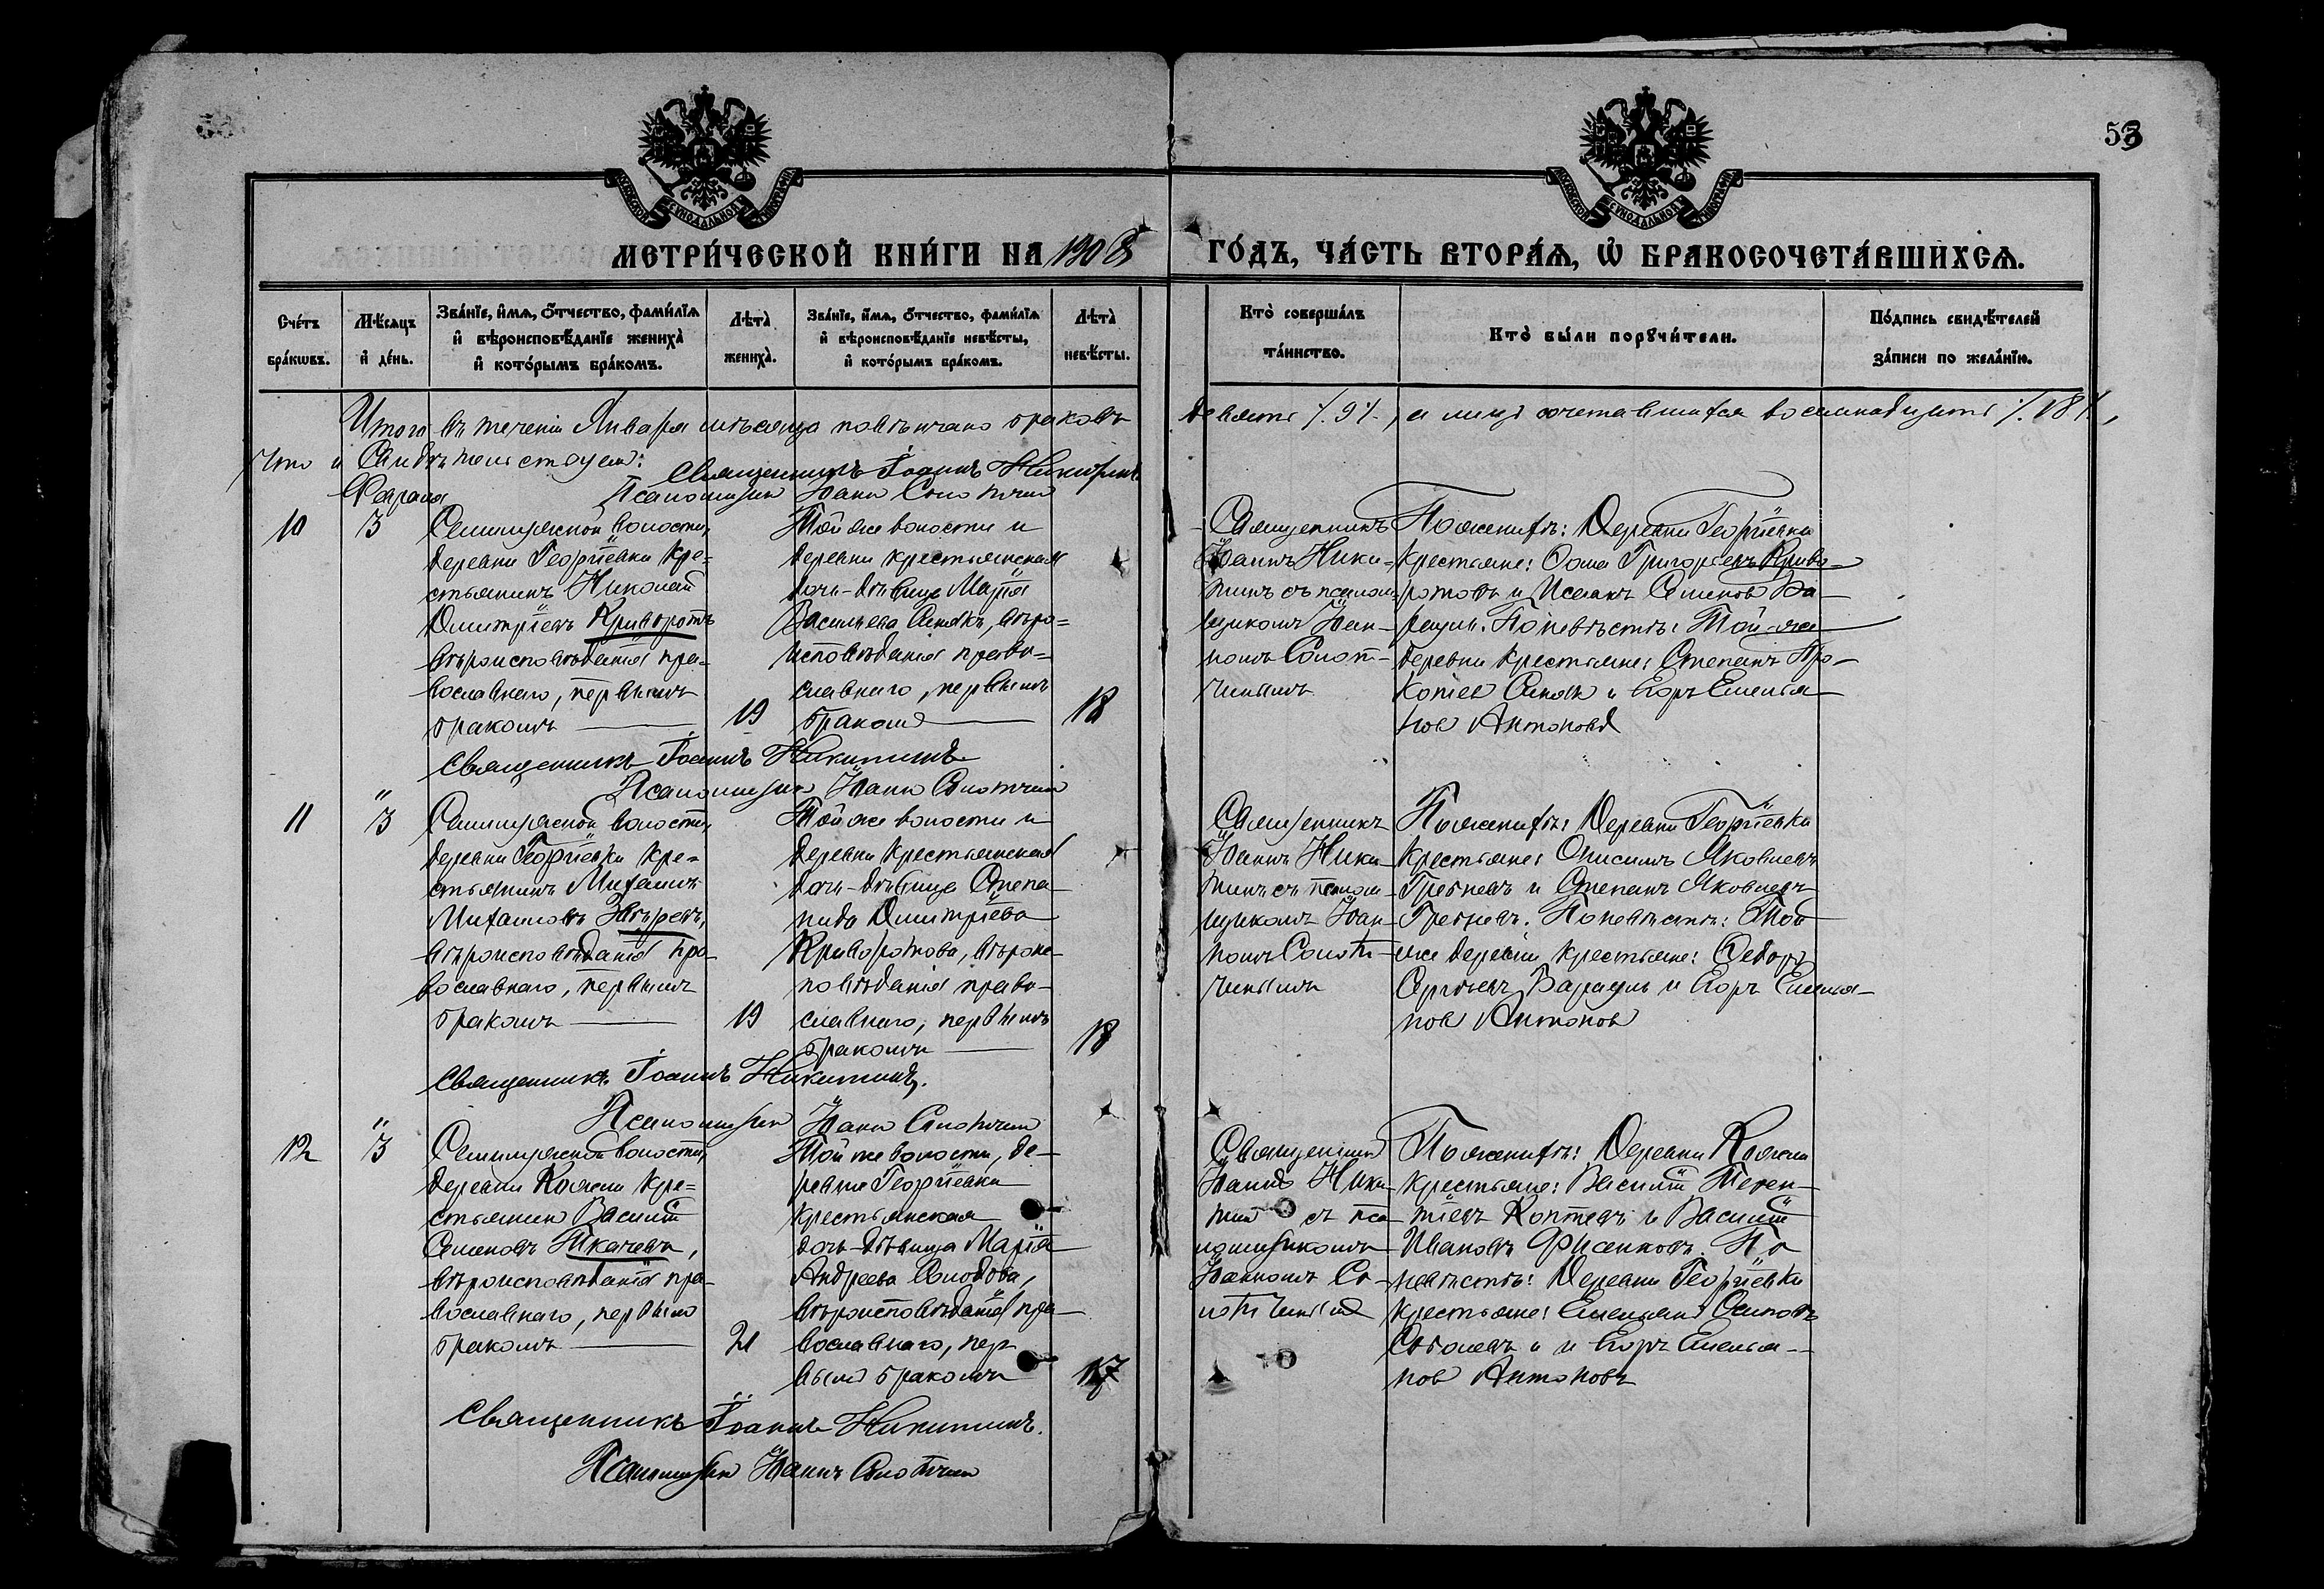 53
МЕТРИ́ЧЕСКОЙ КНИ́ГИ НА 1908 ГО́ДЪ, ЧА́СТЬ ВТОРА́Ѧ, Ѽ БРАКОСОЧЕТА́ВШИХСѦ.
Сче́тъ бра́кѡвъ.
Мѣ́сѧцъ и҆ де́нь.
Зва́нїе, и҆́мѧ, ѻ҆́тчество, фами́лїѧ и҆ вѣроисповѣ́данїе жениха̀ и҆ кото́рымъ бра́комъ.
Лѣта̀ жениха̀.
Зва́нїе, и҆́мѧ, ѻ҆́тчество, фами́лїѧ и҆ вѣроисповѣ́данїе невѣ́сты, и҆ кото́рымъ бра́комъ.
Лѣта̀ невѣ́сты.
Кто̀ соверша́лъ та́инство.
Кто̀ бы́ли порꙋчи́тели.
По́дпись свидѣ́телей за́писи по жела́нїю.
Итого въ теченіи Января мѣсяца повѣнчано браковъ девять /.9/., а лицъ сочетавшихся восемнадцать /.18/.,
что и свидѣтельствуемъ:
Священникъ Іоаннъ Никитинъ
Псаломщикъ Іоаннъ
Февраля
10
3
волости,
деревни Георгіевки кре-
стьянинъ Николай
Димитріевъ Криворотъ
вѣроисповѣданія пра-
вославнаго, первымъ
бракомъ
19
Той же волости и
деревни крестьянская
дочь-дѣвица Марія
Васильева Синякъ, вѣро-
исповѣданія право-
славнаго, первымъ
бракомъ
18
Священникъ
Іоаннъ Ники-
тинъ съ псалом-
щикомъ Іоан-
номъ
По женихѣ: Деревни Георгіевки
крестьяне: Ѳома Григорьевъ Криво-
ротовъ и Исаакъ Семеновъ Ва-
рацуль. По невѣстѣ: Той-же
деревни крестьяне: Степанъ Про-
копіев Синяк и Егоръ Емелья-
нов Антоновъ
Священникъ Іоаннъ Никитинъ
Псаломщикъ Іоаннъ
11
" 3
волости,
деревни Георгіевки кре-
стьянинъ Михаилъ
Михаиловъ
вѣроисповѣданія пра-
вославнаго, первымъ
бракомъ
19
Той же волости и
деревни крестьянская
дочь-дѣвица Степа-
нида Димитріева
Криворотова, вѣроис-
повѣданія право-
славнаго, первымъ
бракомъ
18
Священникъ
Іоаннъ Ники-
тинъ съ псалом-
щикомъ Іоан-
номъ
По женихѣ: Деревни Георгіевки
крестьяне: Онисимъ Яковлевъ
Гребневъ и Степанъ Яковлевъ
Гребневъ. По невѣстѣ: Той
же деревни крестьяне: Ѳедоръ
Сергѣевъ Варацуль и Егоръ Емелья-
нов Антонов
Священникъ Іоаннъ Никитинъ.
Псаломщикъ Іоаннъ
12
" 3
волости,
деревни Кояжи кре-
стьянин Василій
Семеновъ Ткачевъ,
вѣроисповѣданія пра-
вославнаго, первымъ
бракомъ
21
Той же волости, де-
ревни Георгіевки
крестьянская
дочь-дѣвица Марія
Андреева Солодова,
вѣроисповѣданія пра-
вославнаго, пер-
вымъ бракомъ
17
Священникъ
Іоаннъ Ники-
тин съ пса-
ломщикомъ
Іоанномъ
По женихѣ: Деревни Кояжи
крестьяне: Василій Терен-
тіевъ Коптевъ и Василій
Ивановъ Фисенковъ. По
невѣстѣ: Деревни Георгіевки
крестьяне: Емельянъ Осиповъ
Соболевъ и и Егоръ Емелья-
нов Антоновъ
Священникъ Іоаннъ Никитинъ.
Псаломщикъ Іоаннъ